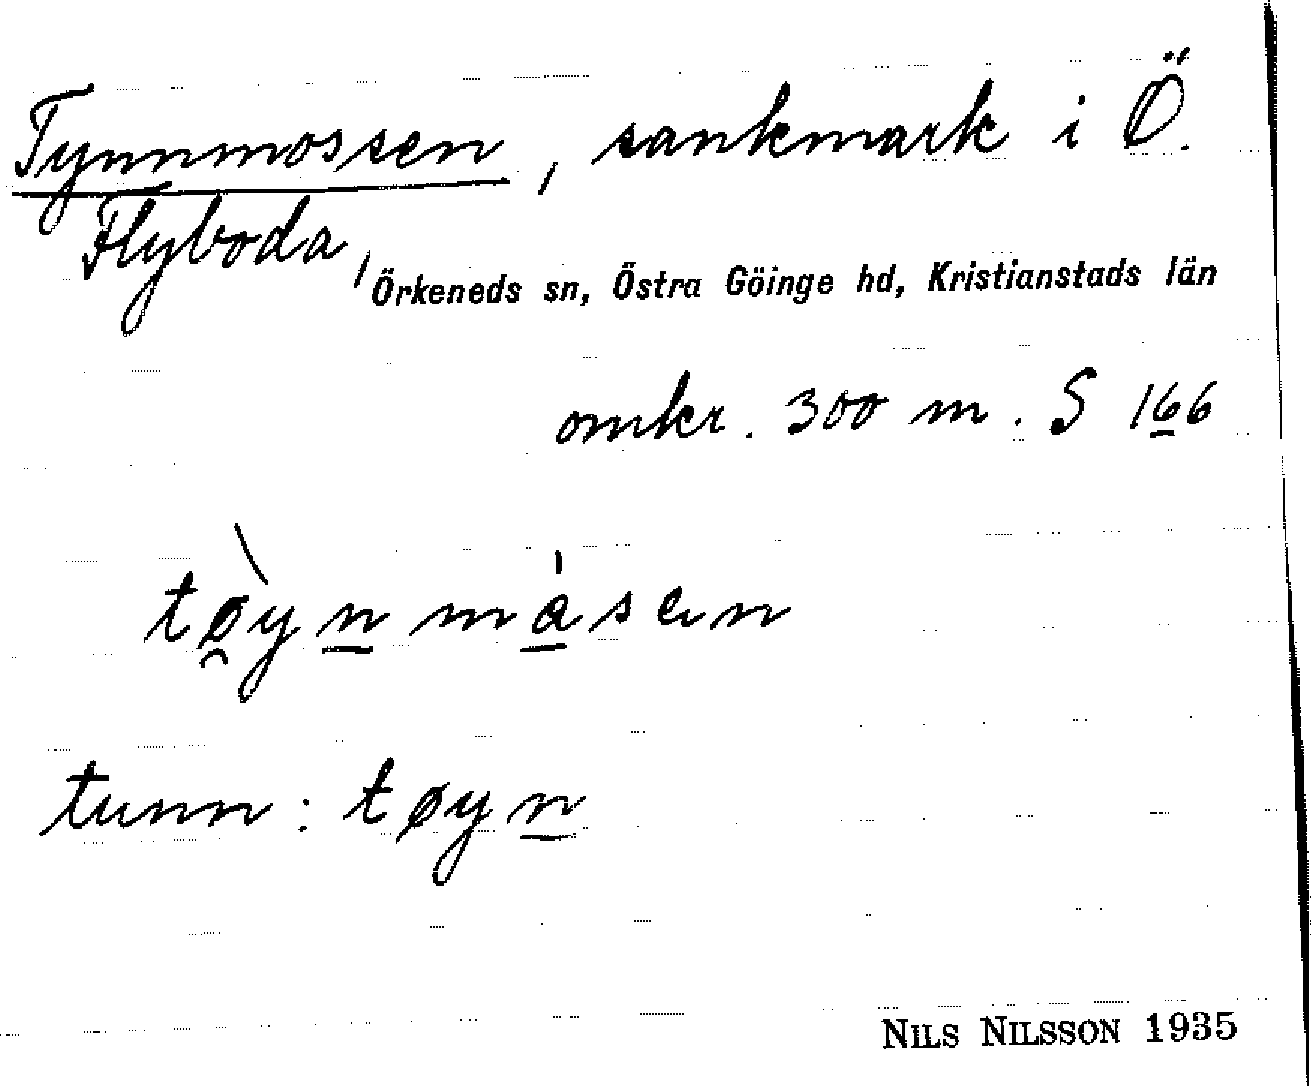 Tynnmossen, sankmark i Ö.
Flyboda, Örkeneds sn, Östra Göinge hd, Kristianstads län
omkr. 300 m. S 166
tøynmåsen
tunn: tøyn
NILS NILSSON 1935